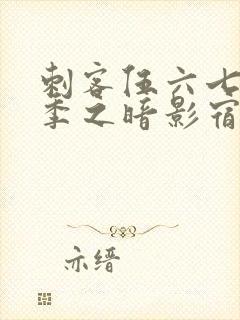 刺客伍六七
季之暗影宿
亦缙